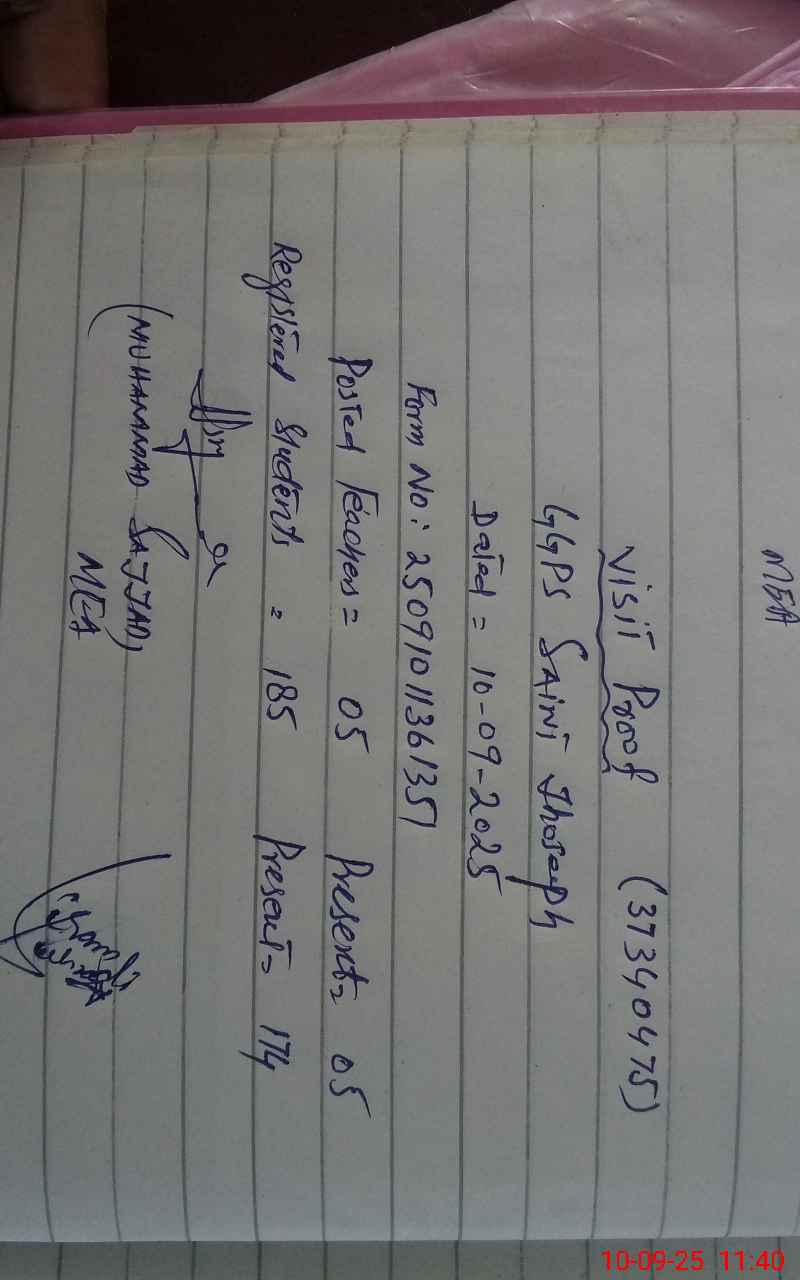 MEA
Visit Proof (37340475)
GGPS SAINT Jhoseph
Dated = 10-09-2025
Form No: 25091011361351
Posted Teachers = 05 Present = 05
Registered Students = 185 Present = 174
(MUHAMMAD SAJJAD)
MEA
10-09-25 11:40